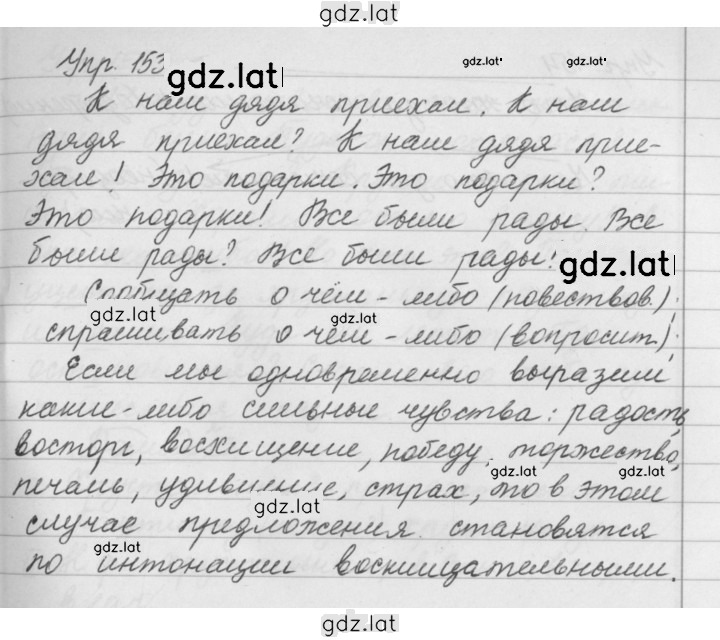 gdz.lat
Упр. 153 gdz.lat gdz.lat gdz.lat
К нам дядя приехал. К нам
дядя приехал? К нам дядя прие-
хал! Это подарки. Это подарки?
Это подарки! Все были рады. Все
были рады? Все были рады! gdz.lat
Сообщать о чём-либо (повествов.);
gdz.lat gdz.lat
спрашивать о чём-либо (вопросит.);
Если мы одновременно выразим
какие-либо сильные чувства: радость,
восторг, восхищение, победу, торжество,
gdz.lat gdz.lat
печаль, удивление, страх, то в этом
gdz.lat
случае предложения становятся
gdz.lat
по интонации восклицательными.
gdz.lat